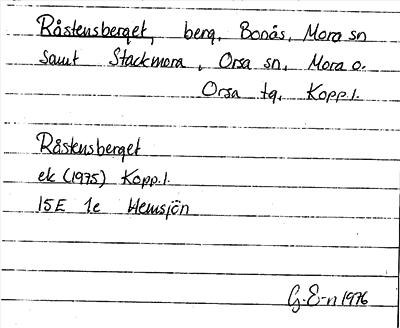 Råstensberget, berg, Bonäs, Mora sn
samt Stackmora, Orsa sn, Mora o.
Orsa tg, Kopp.l.
Råstensberget
ek (1975) Kopp.l.
15E 1e Hemsjön
G.E-n 1976